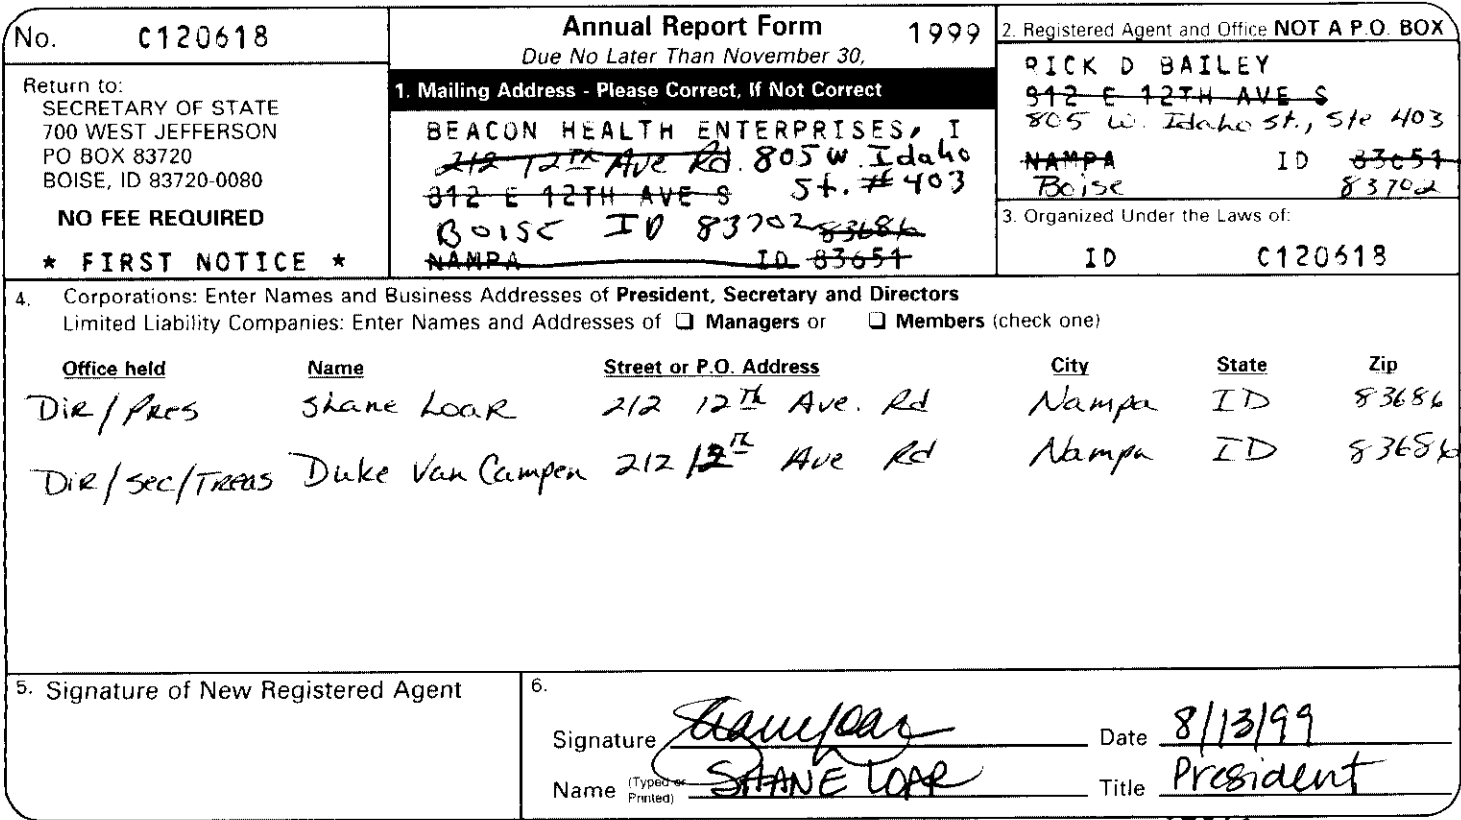 No. C120618
Annual Report Form 1999
Due No Later Than November 30,
Return to:
SECRETARY OF STATE
700 WEST JEFFERSON
PO BOX 83720
BOISE, ID 83720-0080
NO FEE REQUIRED
* FIRST NOTICE *
1. Mailing Address - Please Correct, If Not Correct
BEACON HEALTH ENTERPRISES, I
212 12TH Ave Rd. 805 W. Idaho
912 E 12TH AVE S St. #403
BOISE ID 83702 83686
NAMPA ID 83651
2. Registered Agent and Office NOT A P.O. BOX
RICK D BAILEY
912 E 12TH AVE S
805 W. Idaho St., Ste 403
NAMPA ID 83651
Boise 83702
3. Organized Under the Laws of:
ID C120618
4. Corporations: Enter Names and Business Addresses of President, Secretary and Directors
Limited Liability Companies: Enter Names and Addresses of ☐ Managers or ☐ Members (check one)
Office held Name Street or P.O. Address City State Zip
Dir/Pres Shane Loar 212 12th Ave. Rd Nampa ID 83686
Dir/Sec/Treas Duke Van Campen 212 12th Ave Rd Nampa ID 83686
5. Signature of New Registered Agent
6.
Signature Shane Loar Date 8/13/99
Name (Typed or Printed) SHANE LOAR Title President